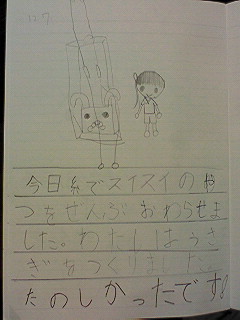 今日糸でスイスイのや
つをぜんぶおわらせま
した。わたしはうさ
ぎをつくりました。
たのしかったです!